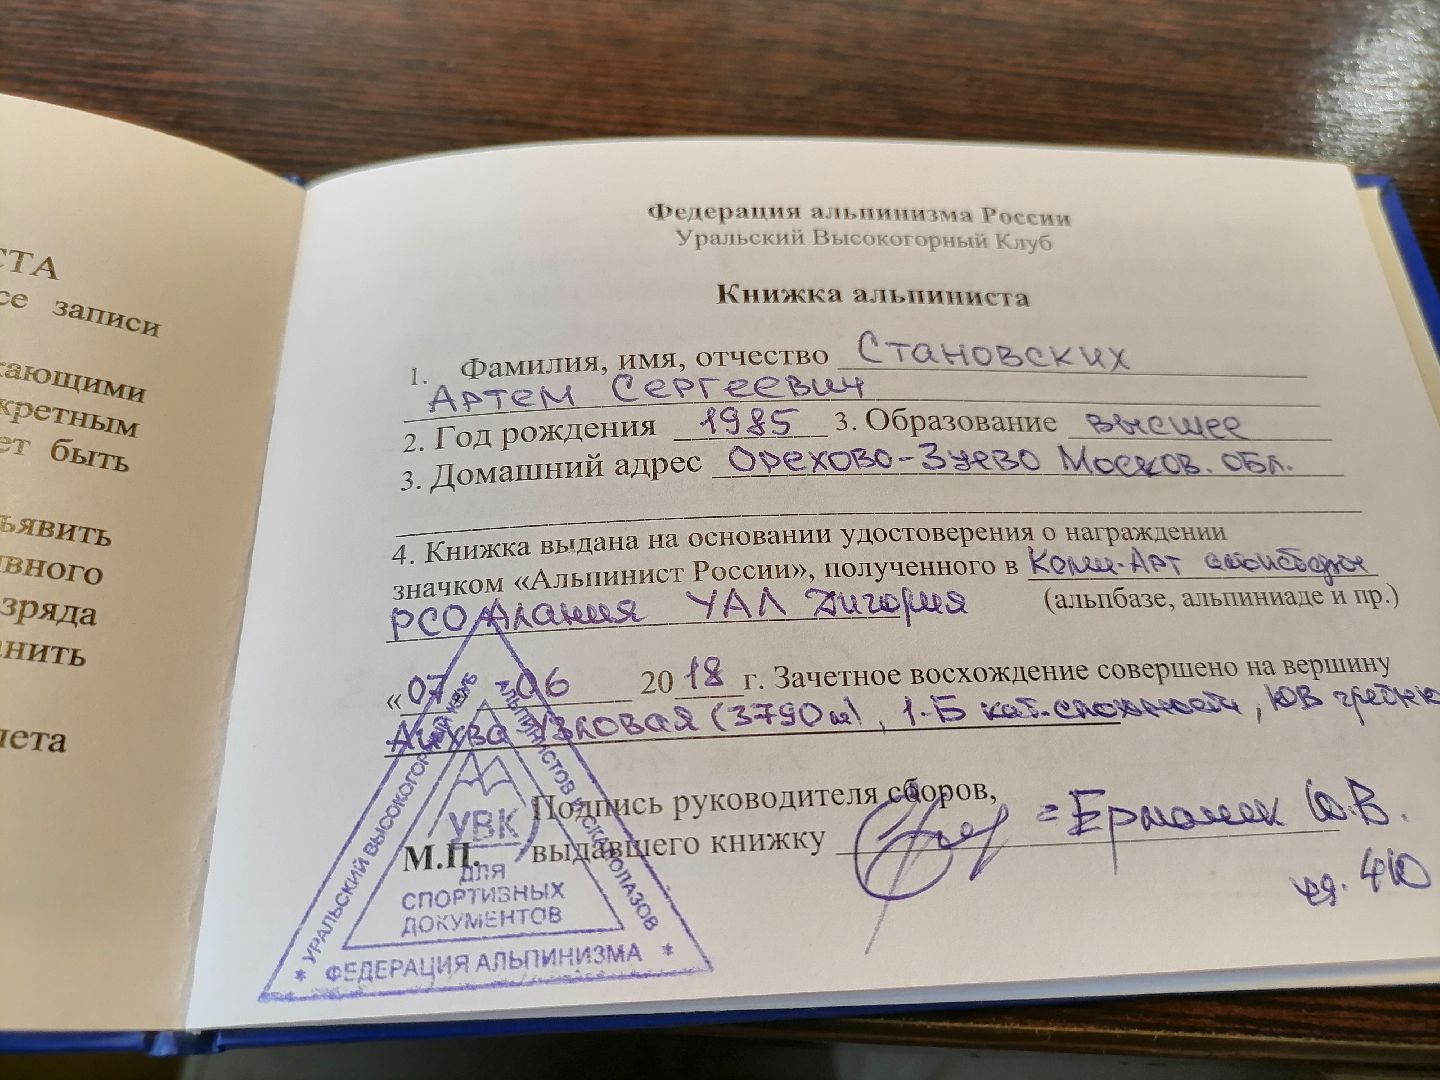 СТА
се записи
кающими
кретным
ет быть
ъявить
ивного
зряда
анить
лета
Федерация альпинизма России
Уральский Высокогорный Клуб
Книжка альпиниста
1. Фамилия, имя, отчество Становских
Артем Сергеевич
2. Год рождения 1985 3. Образование высшее
3. Домашний адрес Орехово-Зуево Москов. обл.
4. Книжка выдана на основании удостоверения о награждении
значком «Альпинист России», полученного в
РСО Алания УАЛ Дигория (альпбазе, альпиниаде и пр.)
«07 -06 2018 г. Зачетное восхождение совершено на вершину
Узловая (3790м), 1-Б кат. сложности, ЮВ гребню
Подпись руководителя сборов,
М.П. выдавшего книжку = Ю.В.
УРАЛЬСКИЙ ВЫСОКОГОРНЫЙ КЛУБ
АЛЬПИНИСТОВ И СКАЛОЛАЗОВ
УВК
ДЛЯ
СПОРТИВНЫХ
ДОКУМЕНТОВ
* ФЕДЕРАЦИЯ АЛЬПИНИЗМА *